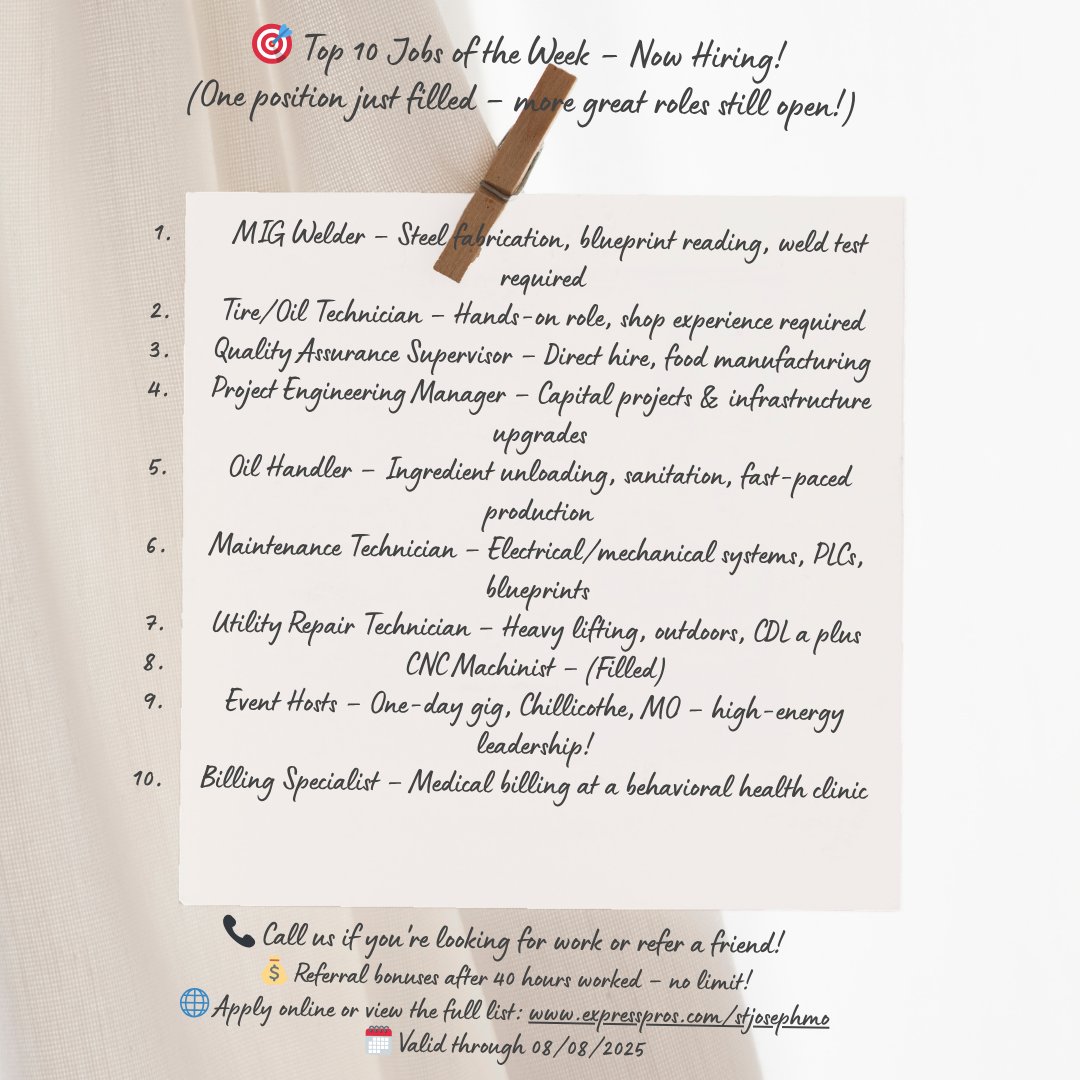 🎯 Top 10 Jobs of the Week – Now Hiring!
(One position just filled – more great roles still open!)
1. MIG Welder – Steel fabrication, blueprint reading, weld test
required
2. Tire/Oil Technician – Hands-on role, shop experience required
3. Quality Assurance Supervisor – Direct hire, food manufacturing
4. Project Engineering Manager – Capital projects & infrastructure
upgrades
5. Oil Handler – Ingredient unloading, sanitation, fast-paced
production
6. Maintenance Technician – Electrical/mechanical systems, PLCs,
blueprints
7. Utility Repair Technician – Heavy lifting, outdoors, CDL a plus
8. CNC Machinist – (Filled)
9. Event Hosts – One-day gig, Chillicothe, MO – high-energy
leadership!
10. Billing Specialist – Medical billing at a behavioral health clinic
📞 Call us if you're looking for work or refer a friend!
💰 Referral bonuses after 40 hours worked – no limit!
🌐 Apply online or view the full list: www.expresspros.com/stjosephmo
🗓️ Valid through 08/08/2025